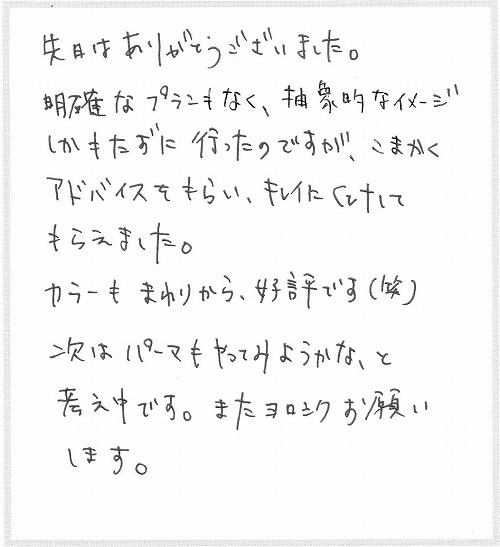 先日はありがとうございました。
明確なプランもなく、抽象的なイメージ
しかもたずに行ったのですが、こまかく
アドバイスをもらい、キレイにして
もらえました。
カラーもまわりから、好評です(笑)
次はパーマもやってみようかな、と
考え中です。またヨロシクお願い
します。